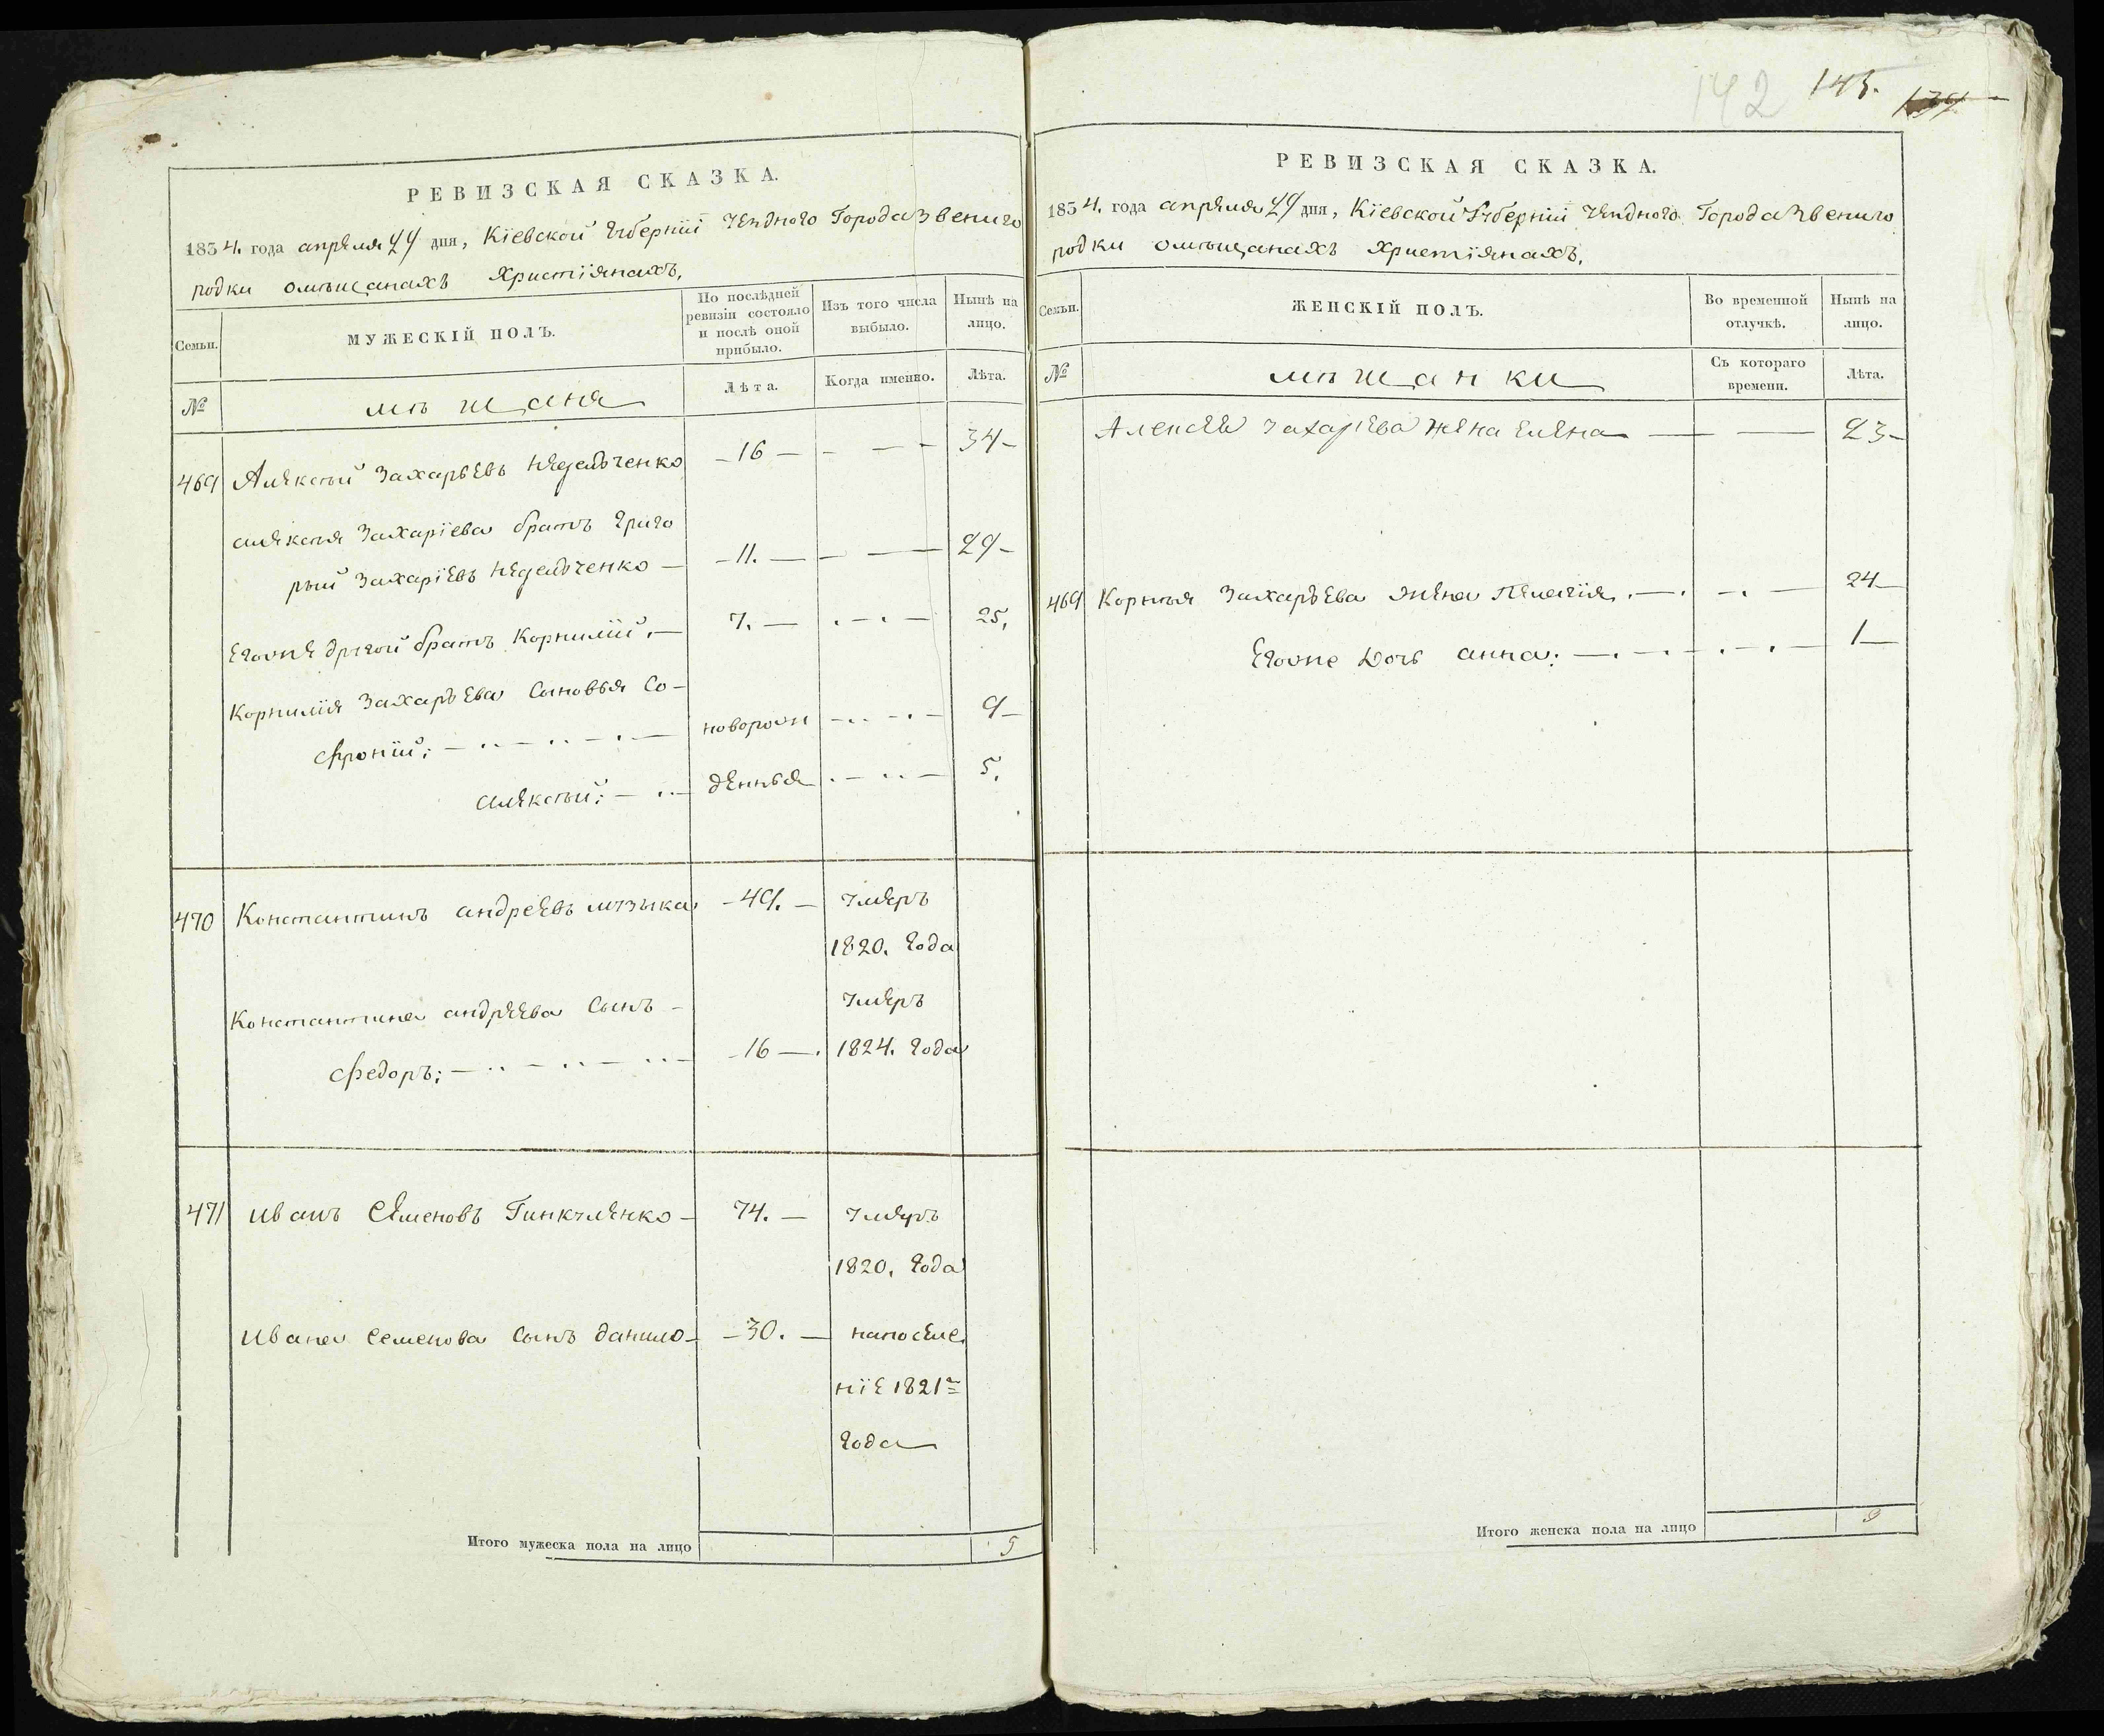 РЕВИЗСКАЯ СКАЗКА.
1834. года апреля 29 дня, Кіевской Губерніи уезднаго Города Звениго
родки омещанахъ Христіянахъ.
Семьи.
МУЖЕСКІЙ ПОЛЪ.
По послѣдней ревизіи состояло и послѣ оной прибыло.
Изъ того числа выбыло.
Нынѣ на лицо.
№
мещаня
Лѣта.
Когда именно.
Лѣта.
469 Алексей Захарьевъ Недельченко -16 — - — - 34-
алексея Захаріева братъ Григо
рий Захаріевъ Недельченко — -11. — — — 29-
Егоже другой братъ Корнилій. — 7. — . — . — 25.
Корнилія Захарьева Сыновья Со-
фроній; — новорож — 9-
алексей; — денныя — 5.
470 Константинъ андреевъ музыка -49. — умеръ
1820. года
Константина андреева Сынъ - умеръ
Федоръ; — -16 — . 1824. года
471 иванъ Семеновъ Гинкуленко - 74. — умеръ
1820. года
Ивана Семенова Сынъ данило - -30. — напоселе
ніе 1821го
года
Итого мужеска пола на лицо 5
142 145. 
РЕВИЗСКАЯ СКАЗКА.
1834. года апреля 29 дня, Кіевской Губерніи уезднаго Города Звениго
родки омещанахъ Христіянахъ.
Семьи.
ЖЕНСКІЙ ПОЛЪ.
Во временной отлучкѣ.
Нынѣ на лицо.
№
мещанки
Съ котораго времени.
Лѣта.
Алексея Захарьева жена Елена — — 23-
469 Корнилия Захарьева жена Пелагія. — . — . — 24—
Егоже Дочь анна; — . — . — . — 1—
Итого женска пола на лицо